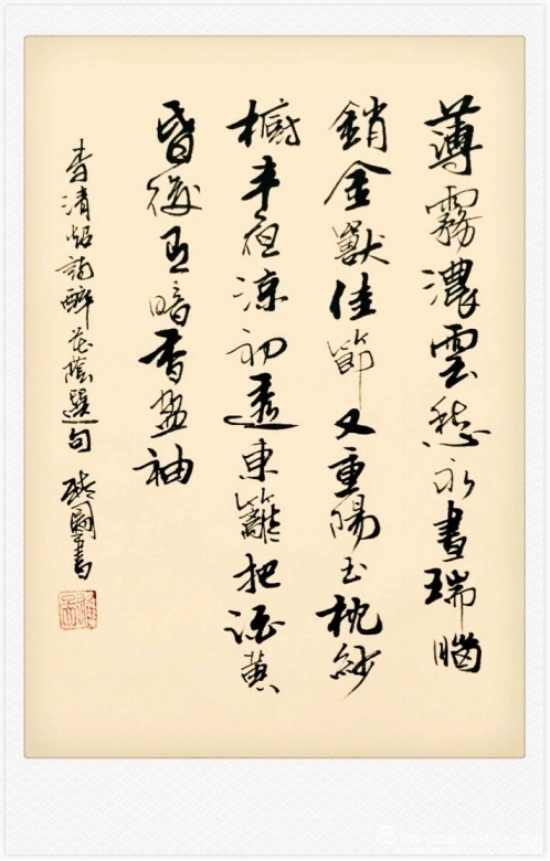 薄霧濃雲愁永晝瑞腦
銷金獸佳節又重陽玉枕紗
櫥半夜涼初透東籬把酒黃
昏後有暗香盈袖
李清照詞醉花蔭選句 書